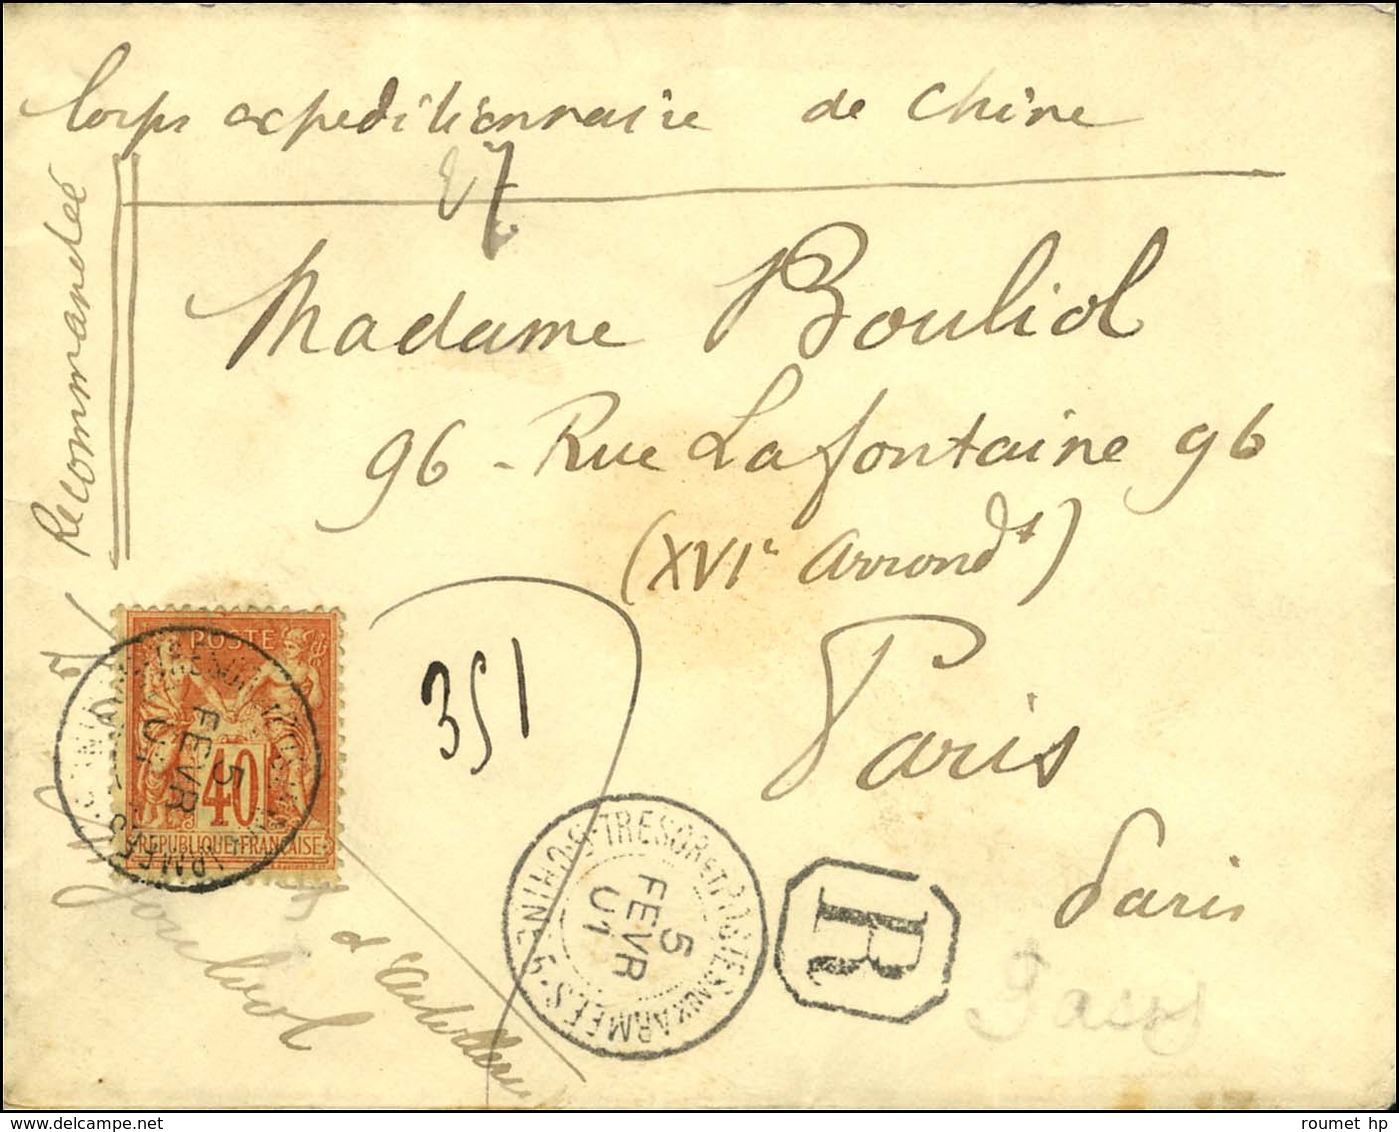 Corps expeditionnaire de Chine
Recommandée
Madame Bouliol
96 - Rue Lafontaine 96
(XVIe Arrondt)
Paris
Paris
Paris
351
POSTE
40
REPUBLIQUE FRANÇAISE
5
FEVR
01
TRESOR ET POSTES AUX ARMEES · CHINE ·
5
FEVR
01
R
Bouliol
d'Artillerie
roumet hp